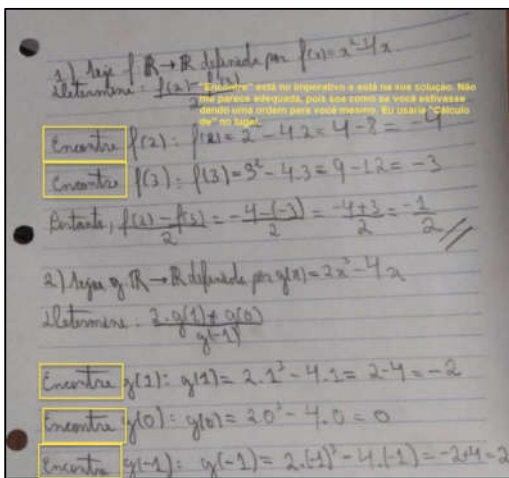 1) Seja f: R → R definida por f(x) = x² - 4x.
Determine: f(2) - f(3)
2
"Encontre" está no imperativo e está na sua solução. Não
me parece adequada, pois soa como se você estivesse
dando uma ordem para você mesmo. Eu usaria "Cálculo
de" no lugar.
Encontre f(2): f(2) = 2² - 4.2 = 4 - 8 = -4
Encontre f(3): f(3) = 3² - 4.3 = 9 - 12 = -3
Portanto, f(2) - f(3) = -4 - (-3) = -4 + 3 = -1
2 2 2 2
2) Seja g: R → R definida por g(x) = 2x³ - 4x
Determine: 3.g(1) + g(0)
g(-1)
Encontre g(1): g(1) = 2.1³ - 4.1 = 2 - 4 = -2
Encontre g(0): g(0) = 2.0³ - 4.0 = 0
Encontre g(-1): g(-1) = 2.(-1)³ - 4.(-1) = -2+4 = 2